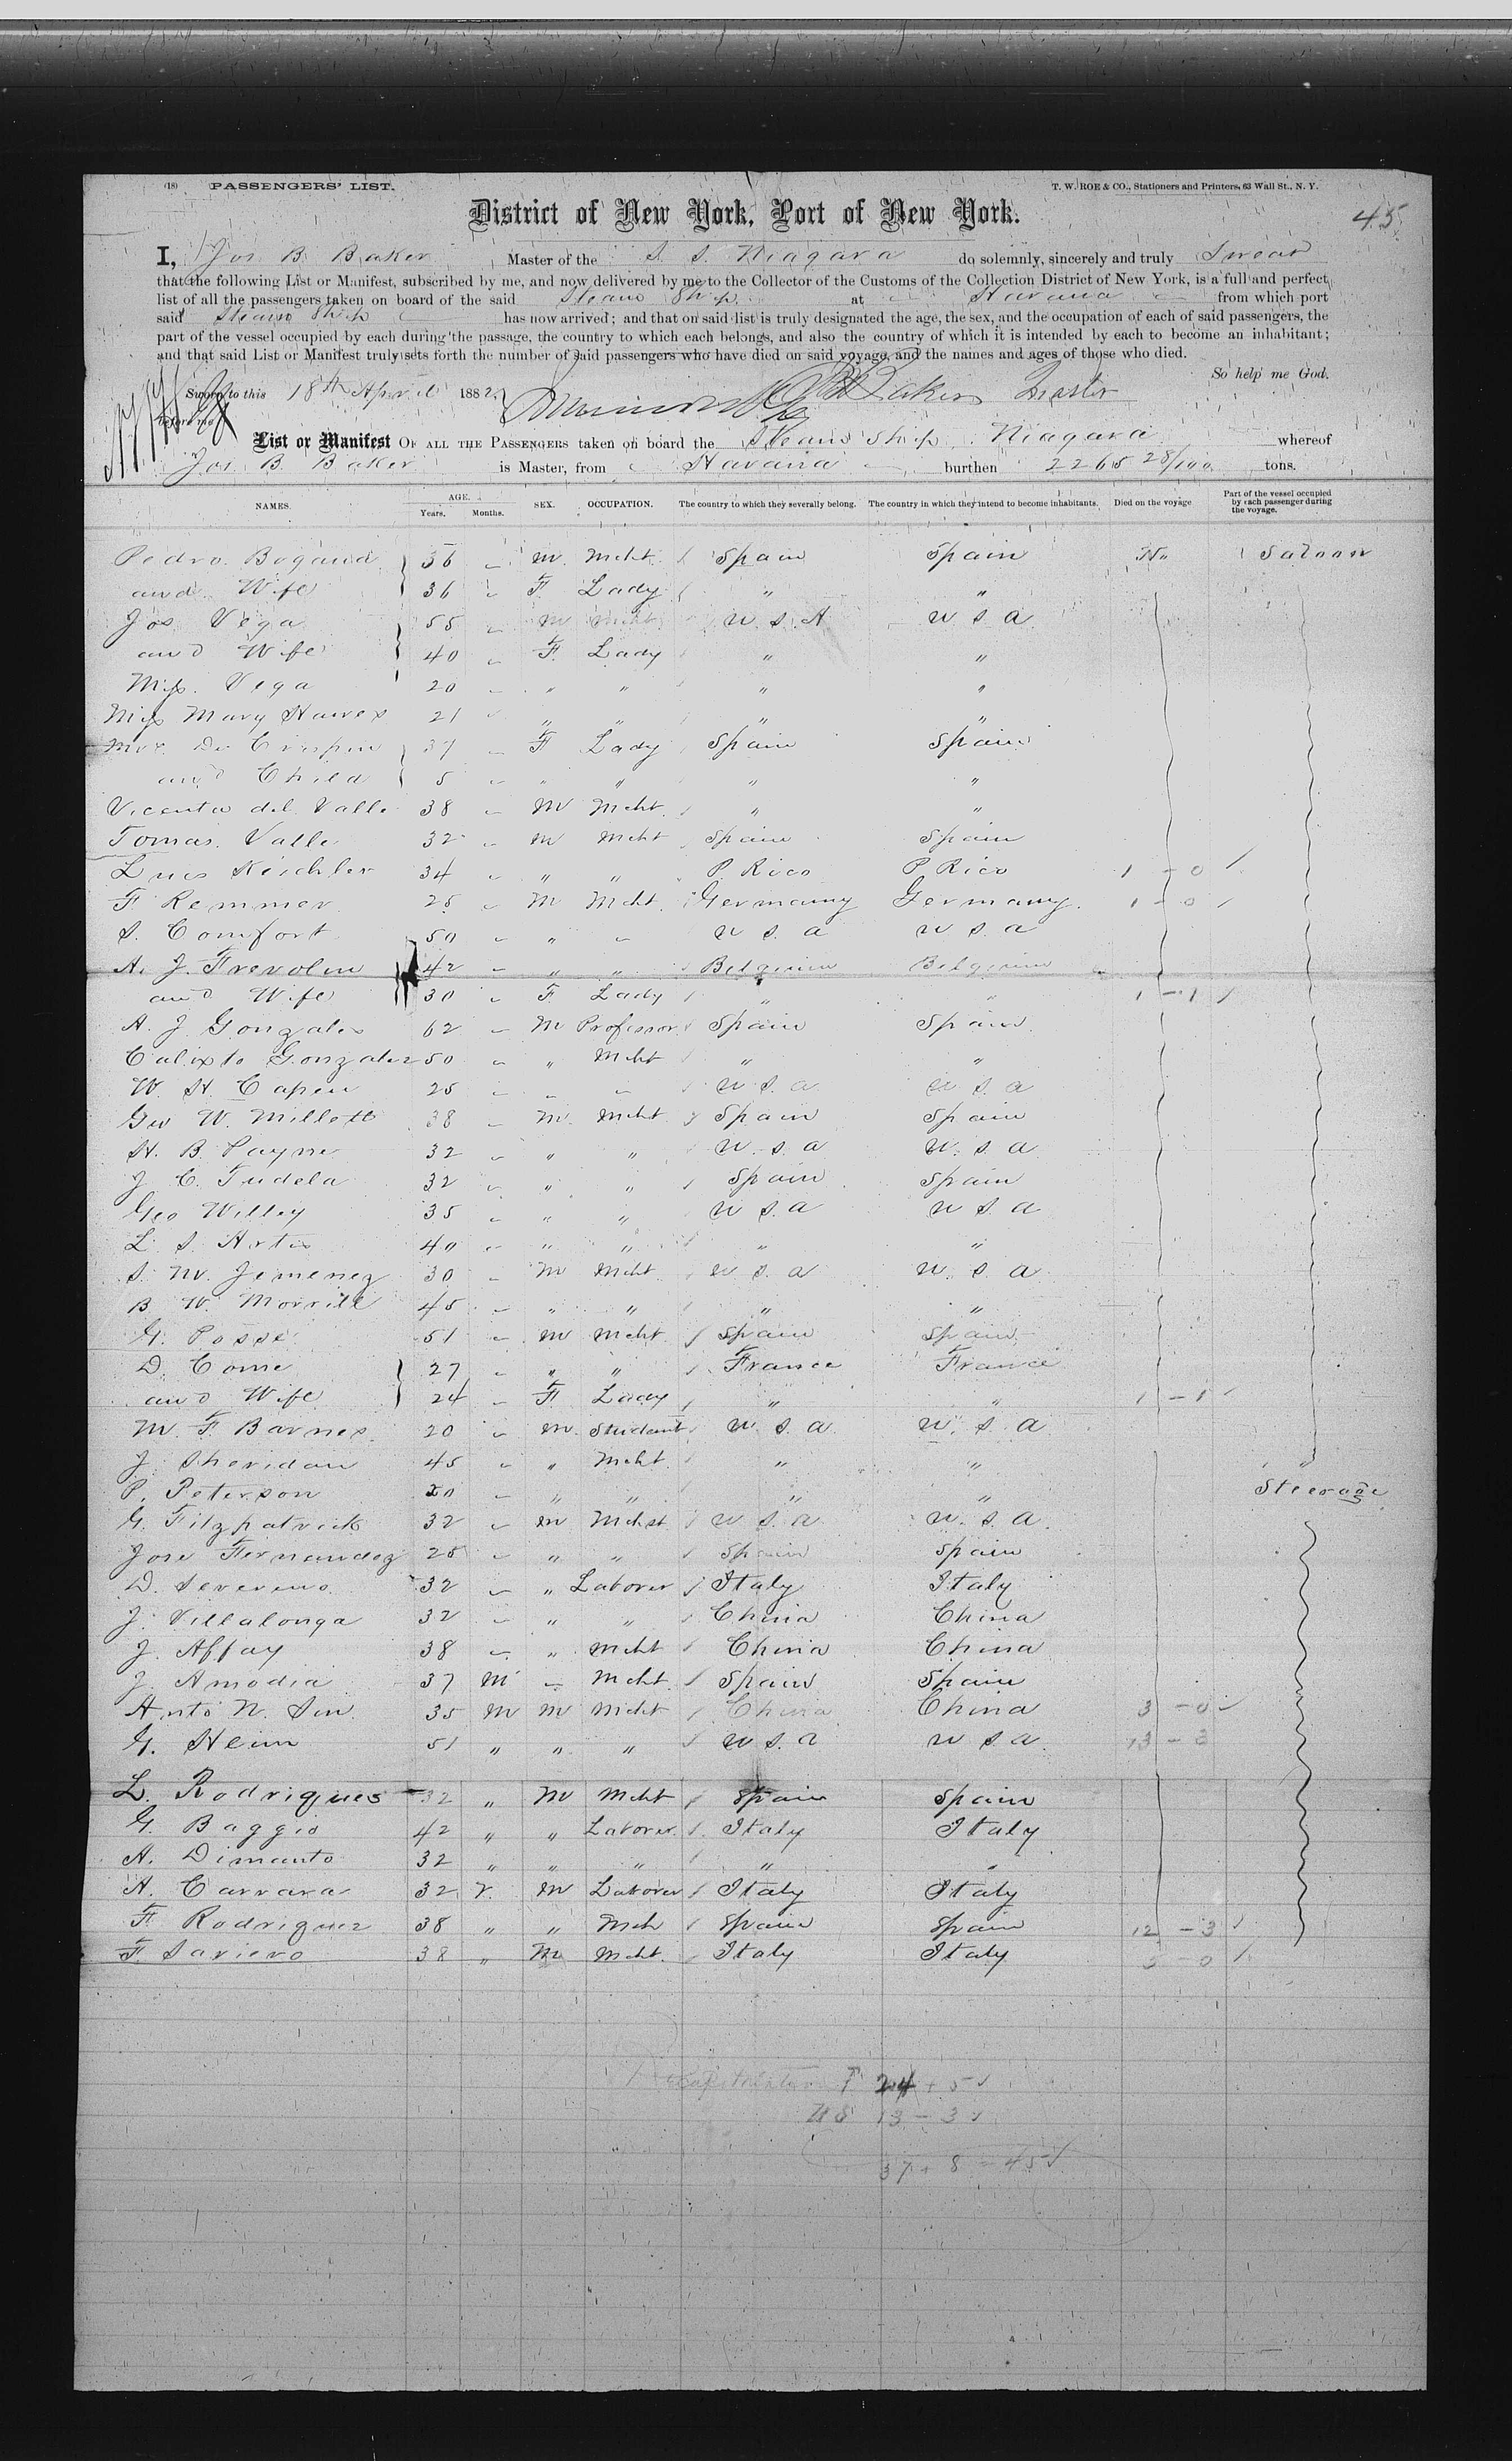 (18) PASSENGERS' LIST. T. W. ROE & CO., Stationers and Printers, 63 Wall St., N. Y.
District of New York, Port of New York. 45
I, Jos B Baker Master of the S. S. Niagara do solemnly, sincerely and truly Swear
that the following List or Manifest, subscribed by me, and now delivered by me to the Collector of the Customs of the Collection District of New York, is a full and perfect
list of all the passengers taken on board of the said Steam Ship at Havana from which port
said Steam Ship has now arrived; and that on said list is truly designated the age, the sex, and the occupation of each of said passengers, the
part of the vessel occupied by each during the passage, the country to which each belongs, and also the country of which it is intended by each to become an inhabitant;
and that said List or Manifest truly sets forth the number of said passengers who have died on said voyage, and the names and ages of those who died.
So help me God.
Sworn to this 18th April 1882 Baker Master
before me
List or Manifest OF ALL THE PASSENGERS taken on board the Steam Ship Niagara whereof
Jos. B. Baker is Master, from Havana burthen 2265 28/100 tons.
NAMES. AGE. Years. Months. SEX. OCCUPATION. The country to which they severally belong. The country in which they intend to become inhabitants. Died on the voyage Part of the vessel occupied by each passenger during the voyage.
Pedro Bogaud 36 M Mcht Spain Spain No Saloon
and Wife 36 F. Lady " "
Jos Vega 55 M Mcht U. S. A U S A
and Wife 40 F. Lady " "
Miss Vega 20 " " " "
Miss Mary Hawes 21 " " " "
Mrs. De Crispin 37 F Lady Spain Spain
and Child 5 " " " "
Vicenta del Valle 38 M Mcht " "
Tomas Valle 32 M Mcht Spain Spain
Luis Keichler 34 " " P. Rico P. Rico 1 - 0
F Remmer 25 M Mcht. Germany Germany. 1 - 0
S. Comfort 50 " " U S. A U S. A
A. J. Frevolin 42 " " Belgium Belgium
and Wife 30 F Lady " " 1 - 1
A. J Gonzales 62 M Professor Spain Spain
Calixto Gonzalez 50 " Mcht " "
W. H. Capen 25 U S. A U S. A
Geo W. Millett 38 M. Mcht Spain Spain
H. B. Payne 32 " " U. S. A U. S. A
J C. Tudela 32 " " Spain Spain
Geo Willey 35 " " U S. A U S. A
L. S. Artis 40 " " " "
S. M. Jemenez 30 M Mcht U S. A U. S A
B W. Morrill 45 " " " "
G. Posse 51 M Mcht Spain Spain
D. Come 27 " " France France
and Wife 24 F Lady " " 1 - 1
M. F. Barnes 20 M. Student U. S. A U. S. A
J. Sheridan 45 " Mcht. " " "
P. Peterson 20 " " " " Steerage
G. Fitzpatrick 32 M Mchst U S. A U. S. A.
Jose Fernandez 25 " " Spain Spain
D. Severino 32 " Laborer Italy Italy
J. Villalonga 32 " " China China
J. Affay 38 " Mcht China China
J. Amodia 37 M Mcht. Spain Spain
Anto N. Sin 35 M M Mcht China China 3 - 0
G. Heim 51 " " " U S. A U S A 13 - 3
L. Rodrigues 32 " M Mcht Spain Spain
G. Baggio 42 " " Laborer. Italy Italy
A. Dimanto 32 " " " " "
A. Carrara 32 Y. M Laborer Italy Italy
F. Rodriguez 38 " " Mch Spain Spain 12 - 3
F. Saviero 38 " M Mcht. Italy Italy 5 - 0
Recapitulation F 24 + 5
US 13 - 3
37 + 8 = 45